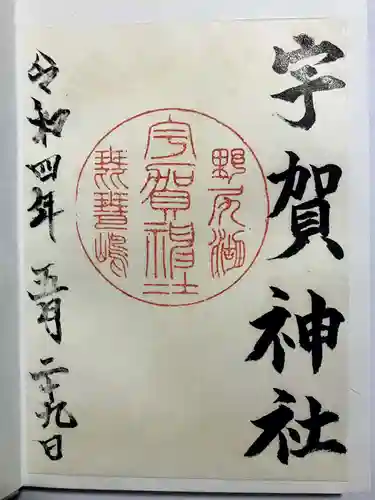 宇賀神社
野尻湖
宇賀神社
琵琶嶋
令和四年五月二十九日